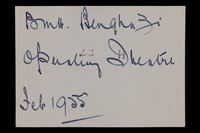 B.M.H. Benghazi
Operating Theatre
Feb 1955